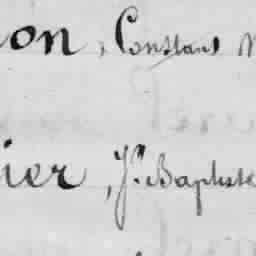 on, Constant
ier, Jn. Baptiste